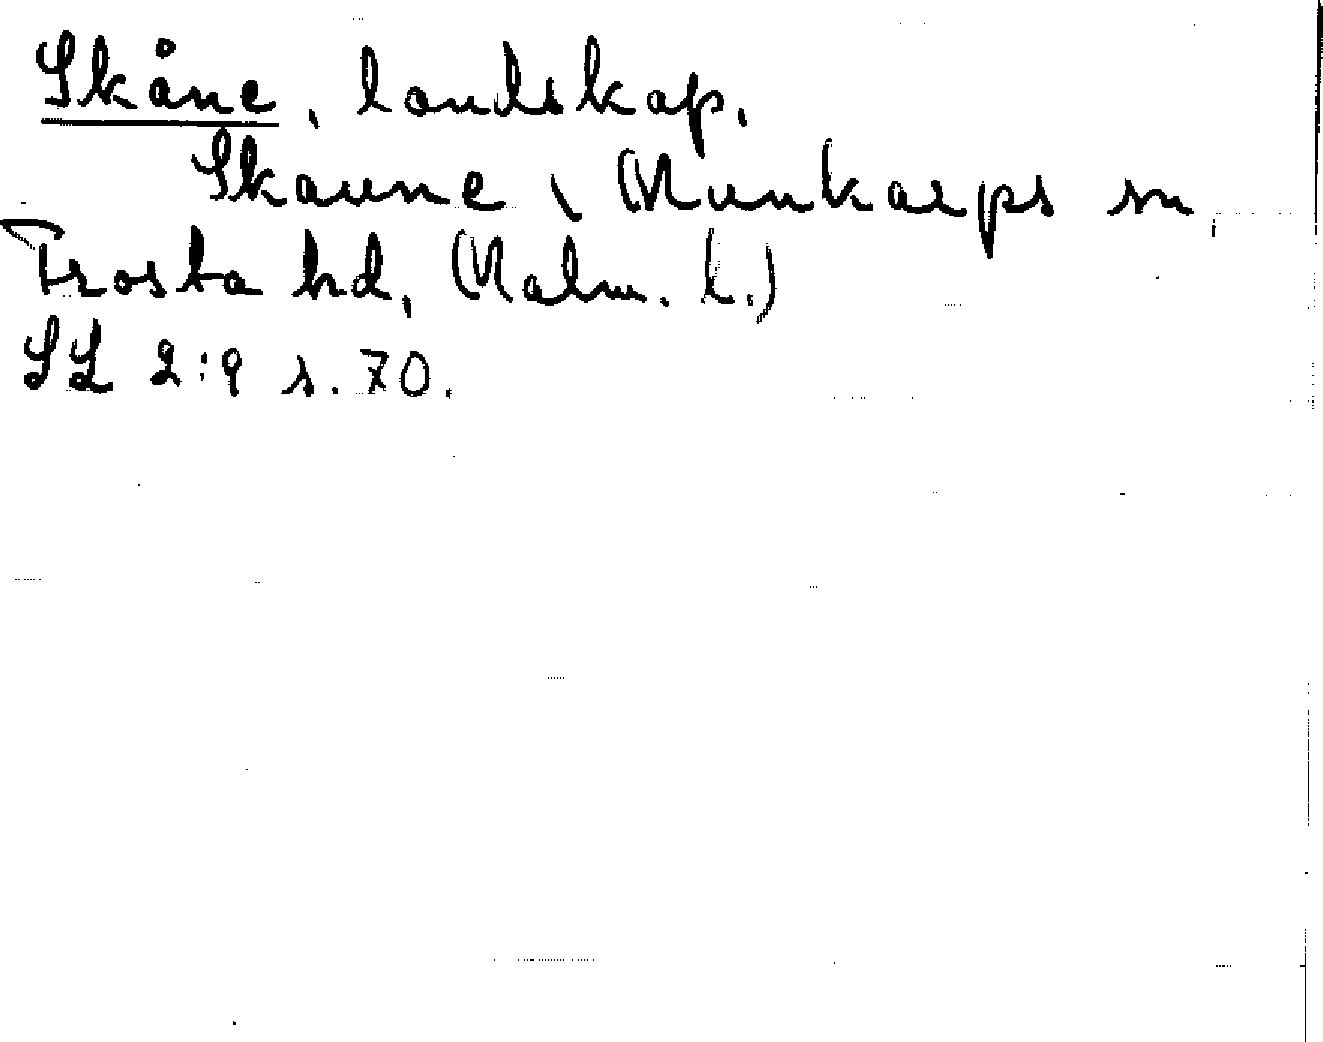 Skåne, landskap.
Skaune, Munkarps sn,
Frosta hd, (Malm. l.)
SL 2:9 s. 70.